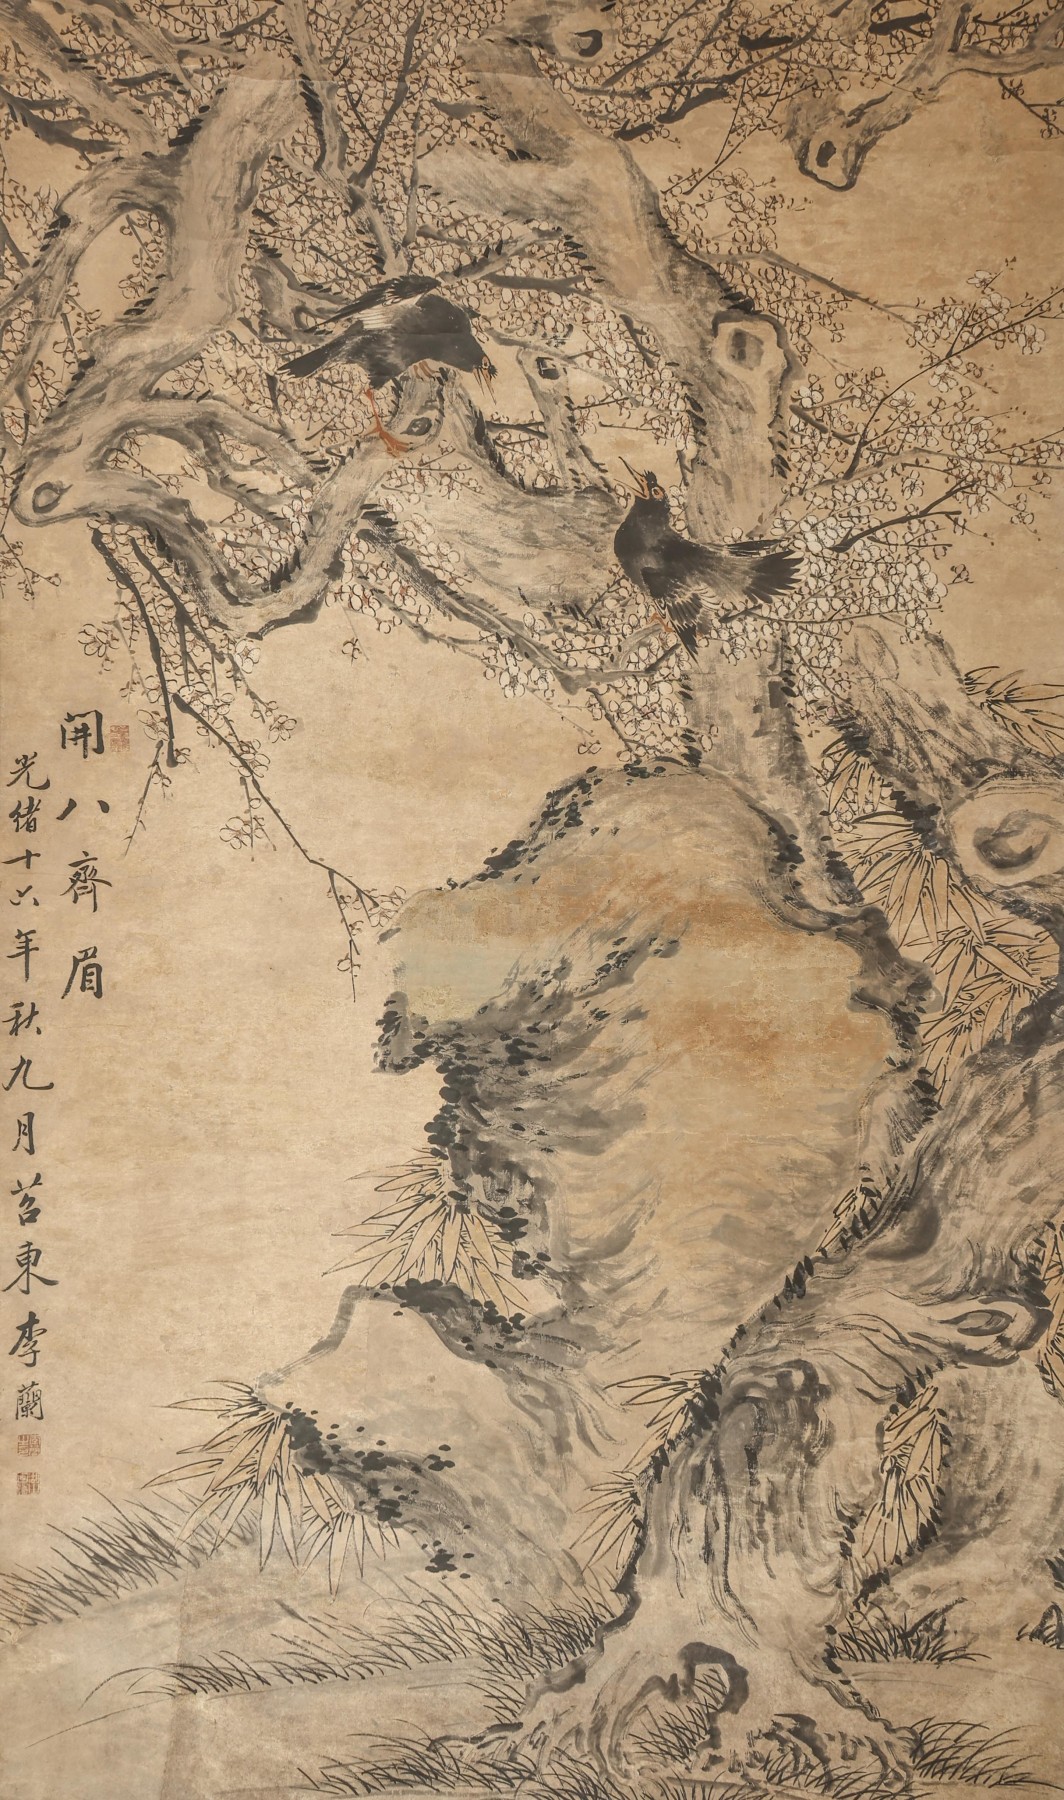 開八齊眉
光緒十六年秋九月苕東李蘭